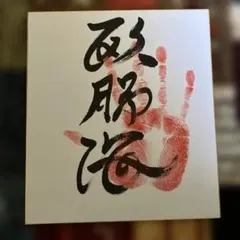 欧勝海